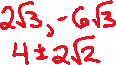 2√3, -6√3
4 ± 2√2